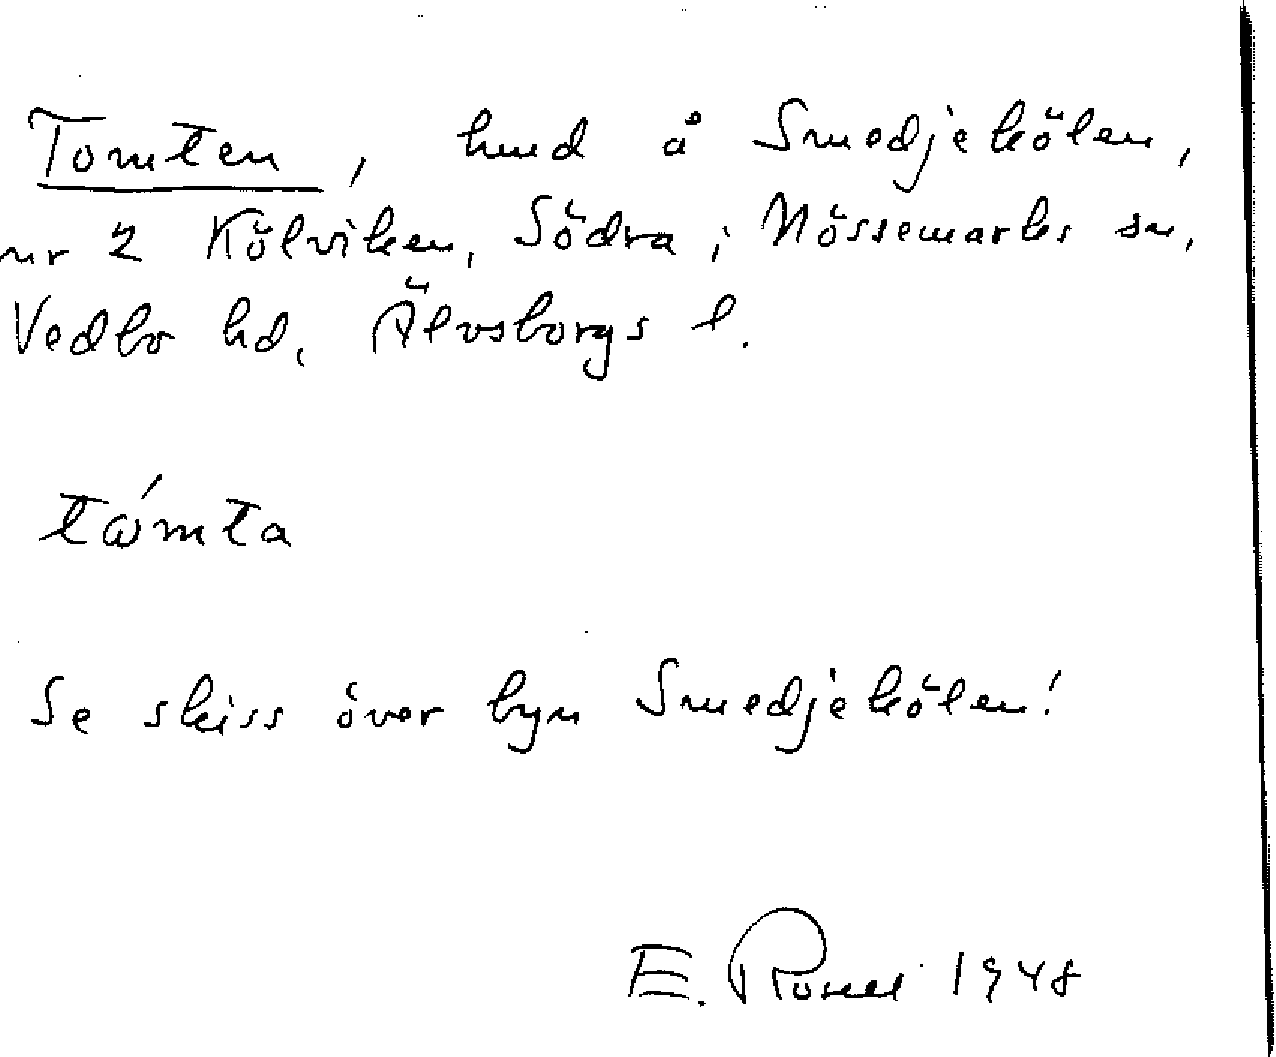 Tomten, hmd å Smedjekölen,
nr 2 Kölviken, Södra, i Nössemarks sn,
Vedbo hd, Älvsborgs l.
tómta
Se skiss över byn Smedjekölen!
E. Rosell 1948